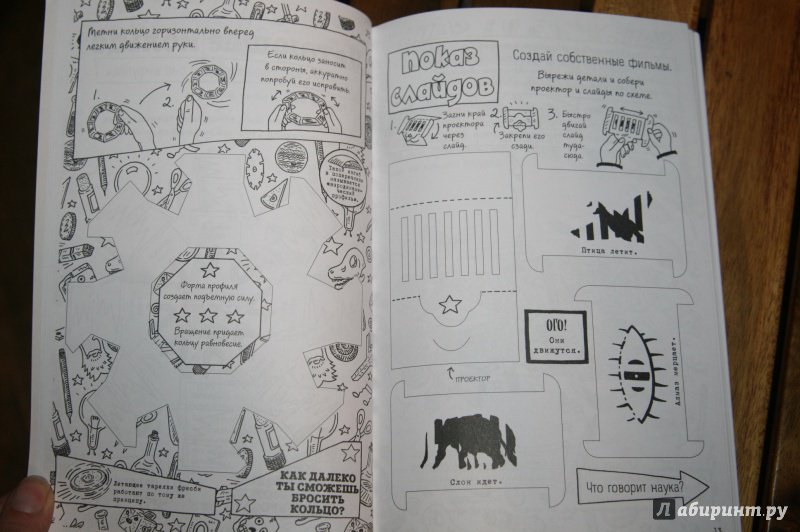 Метни кольцо горизонтально вперед
легким движением руки.
Если кольцо заносит
в стороны, аккуратно
попробуй его исправить.
1.
2.
Форма профиля
создает подъемную силу.
Вращение придает
кольцу равновесие.
Летающие тарелки фрисби
работают по тому же
принципу.
КАК ДАЛЕКО
ТЫ СМОЖЕШЬ
БРОСИТЬ
КОЛЬЦО?
ПОКАЗ
СЛАЙДОВ
Создай собственные фильмы.
Вырежи детали и собери
проектор и слайды по схеме.
1.
Загни край
проектора
через
слайд.
2.
Закрепи его
сзади.
3. Быстро
двигай
слайд
туда-
сюда.
Птица летит.
ОГО!
Они
движутся.
Алмаз мерцает.
ПРОЕКТОР
Слон идет.
Что говорит наука?
Лабиринт.ру